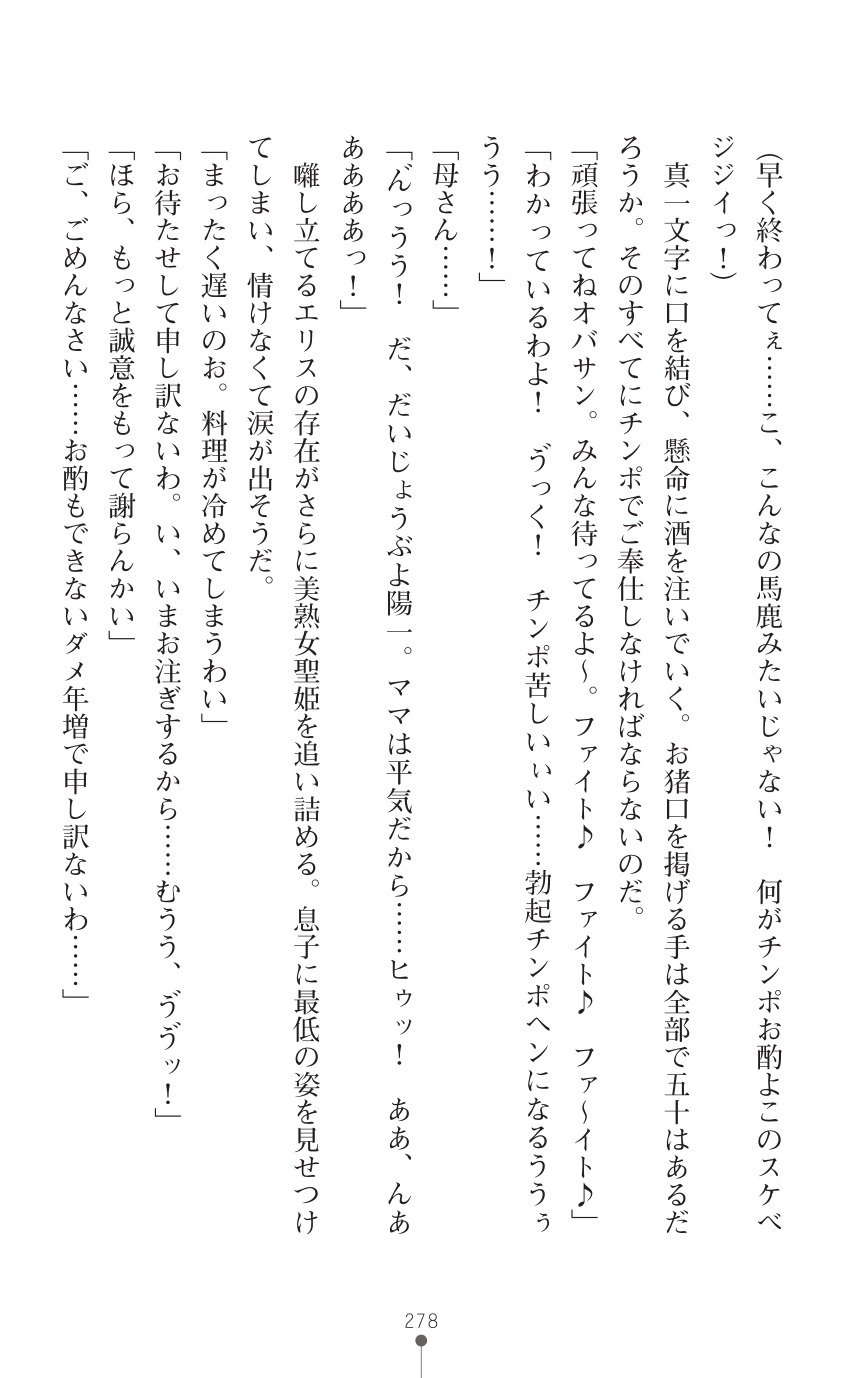 (早く終わってぇ……こ、こんなの馬鹿みたいじゃない!　何がチンポお酌よこのスケベ
ジジイっ!)
　真一文字に口を結び、懸命に酒を注いでいく。お猪口を掲げる手は全部で五十はあるだ
ろうか。そのすべてにチンポでご奉仕しなければならないのだ。
「頑張ってねオバサン。みんな待ってるよ～。ファイト♪　ファイト♪　ファ～イト♪」
「わかっているわよ!　ゔっく!　チンポ苦しいぃい……勃起チンポヘンになるううぅ
うう……!」
「母さん……」
「ん゙っうう!　だ、だいじょうぶよ陽一。ママは平気だから……ヒゥッ!　ああ、んあ
ああああっ!」
　囃し立てるエリスの存在がさらに美熟女聖姫を追い詰める。息子に最低の姿を見せつけ
てしまい、情けなくて涙が出そうだ。
「まったく遅いのお。料理が冷めてしまうわい」
「お待たせして申し訳ないわ。い、いまお注ぎするから……むうう、ゔゔッ!」
「ほら、もっと誠意をもって謝らんかい」
「ご、ごめんなさい……お酌もできないダメ年増で申し訳ないわ……」
278